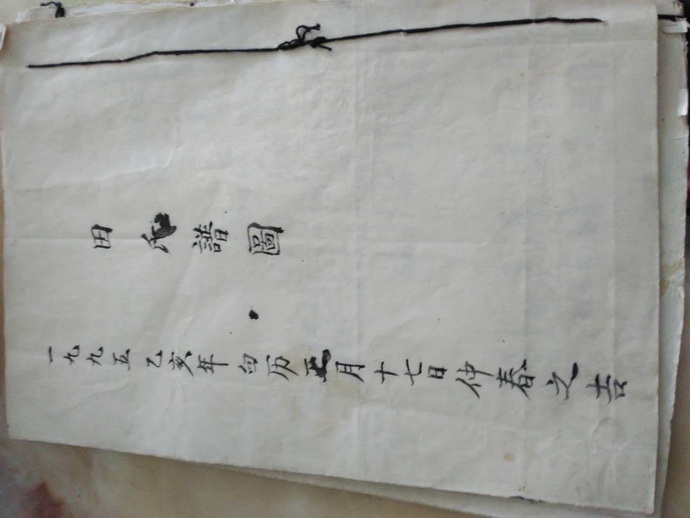 田氏譜圖
一九九五乙亥年白历正月十七日仲春之吉